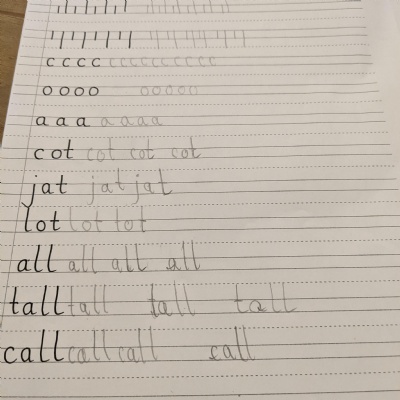 c c c c c c c c c c c c c c
o o o o o o o o o
a a a a a a a
cot cot cot cot
jat jat jat
lot lot lot
all all all all
tall tall tall tall
call call call call